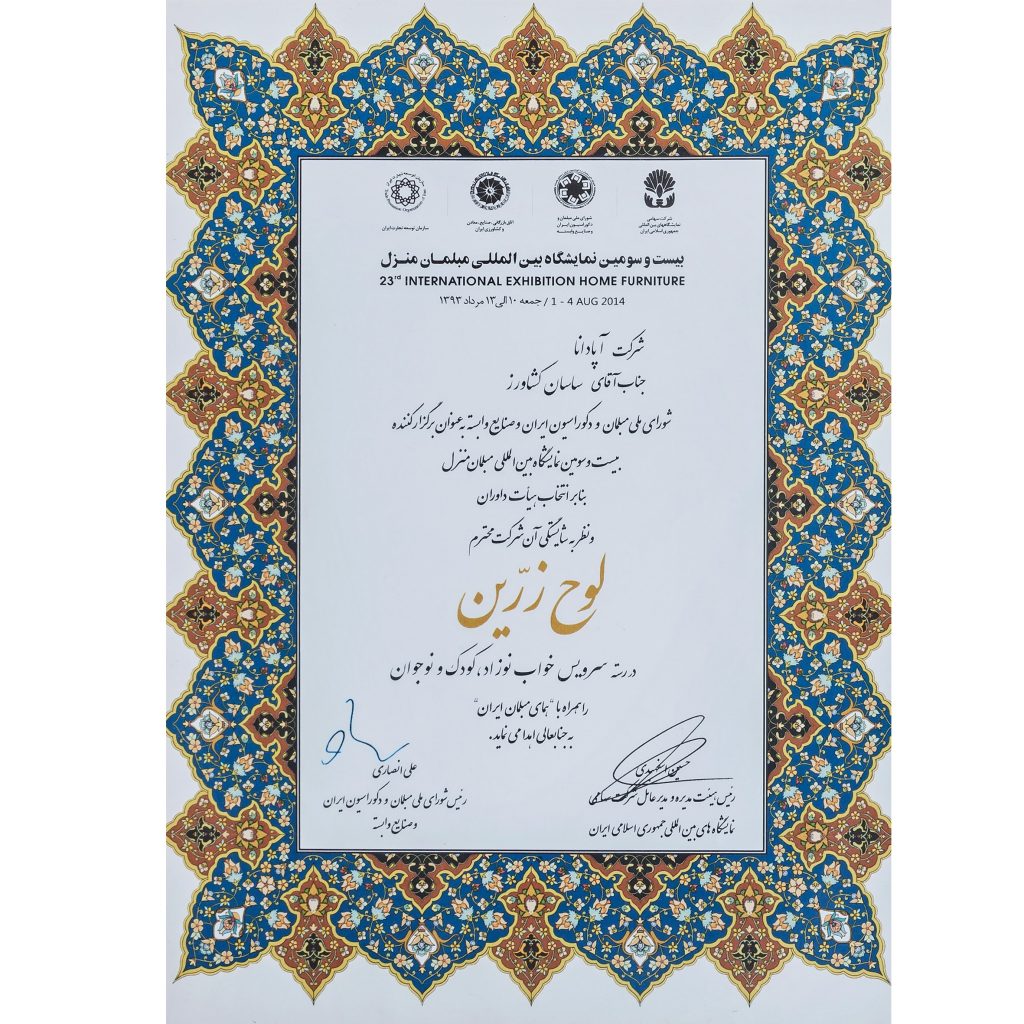 شرکت سهامی
نمایشگاههای بین المللی
جمهوری اسلامی ایران
شورای ملی مبلمان و
دکوراسیون ایران
و صنایع وابسته
اتاق بازرگانی، صنایع، معادن
و کشاورزی ایران
سازمان توسعه تجارت ایران
بیست و سومین نمایشگاه بین المللی مبلمان منزل
23rd INTERNATIONAL EXHIBITION HOME FURNITURE
جمعه ۱۰ الی ۱۳ مرداد ۱۳۹۳ / 1 - 4 AUG 2014
شرکت آپادانا
جناب آقای ساسان کشاورز
شورای ملی مبلمان و دکوراسیون ایران و صنایع وابسته به عنوان برگزار کننده
بیست و سومین نمایشگاه بین المللی مبلمان منزل
بنابر انتخاب هیأت داوران
و نظر به شایستگی آن شرکت محترم
لوح زرّین
در رسته سرویس خواب نوزاد، کودک و نوجوان
را همراه با "همای مبلمان ایران"
به جنابعالی اهدا می نماید.
حسین اسفهبدی
رئیس هیئت مدیره و مدیر عامل شرکت سهامی
نمایشگاه های بین المللی جمهوری اسلامی ایران
علی انصاری
رئیس شورای ملی مبلمان و دکوراسیون ایران
و صنایع وابسته